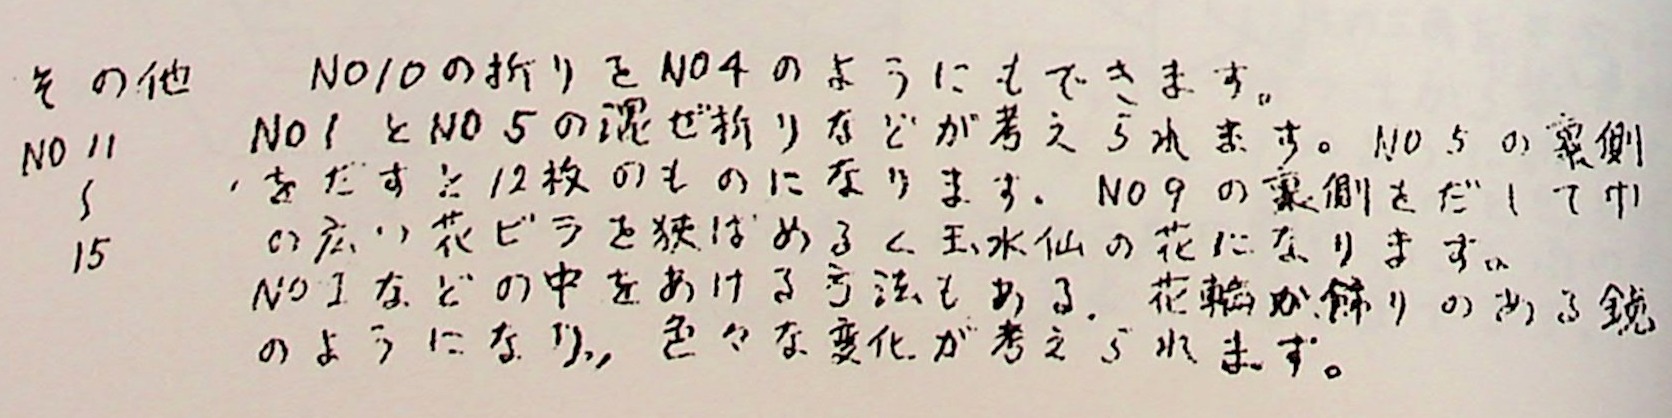 その他 NO10の折りをNO4のようにもできます。
NO11 NO1とNO5の混ぜ折りなどが考えられます。NO5の裏側
〜 をだすと12枚のものになります。NO9の裏側をだして巾
15 の広い花ビラを狭ばめると玉水仙の花になります。
NO1などの中をあける方法もある。花輪が飾りのある鏡
のようになり、色々な変化が考えられます。